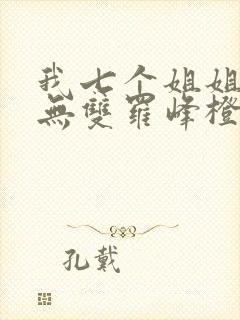 我七个姐姐
無雙羅峰橙
孔戴